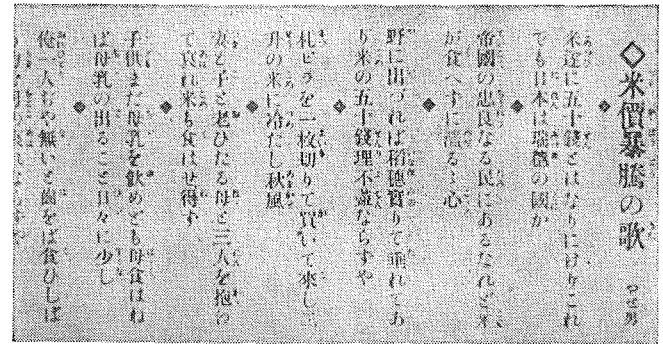 ◇米價暴騰の歌
やせ男
米遂に五十錢とはなりにけりこれ
でも日本は瑞穗の國か
◆
帝國の忠良なる民にあるなれど米
が食へずに濡るゝ心
◆
野に出づれば稻穗實りて垂れてあ
り米の五十錢理不盡ならずや
◆
札ビラを一枚切りて買いて來し二
升の米に冷たし秋風
◆
妻と子と老ひたる母と三人を抱へ
て哀れ米も食はせ得ず
◆
子供まだ母乳を飮めども母食はね
ば母乳の出ること日々に少し
◆
俺一人ぢや無いと齒をば食ひしば